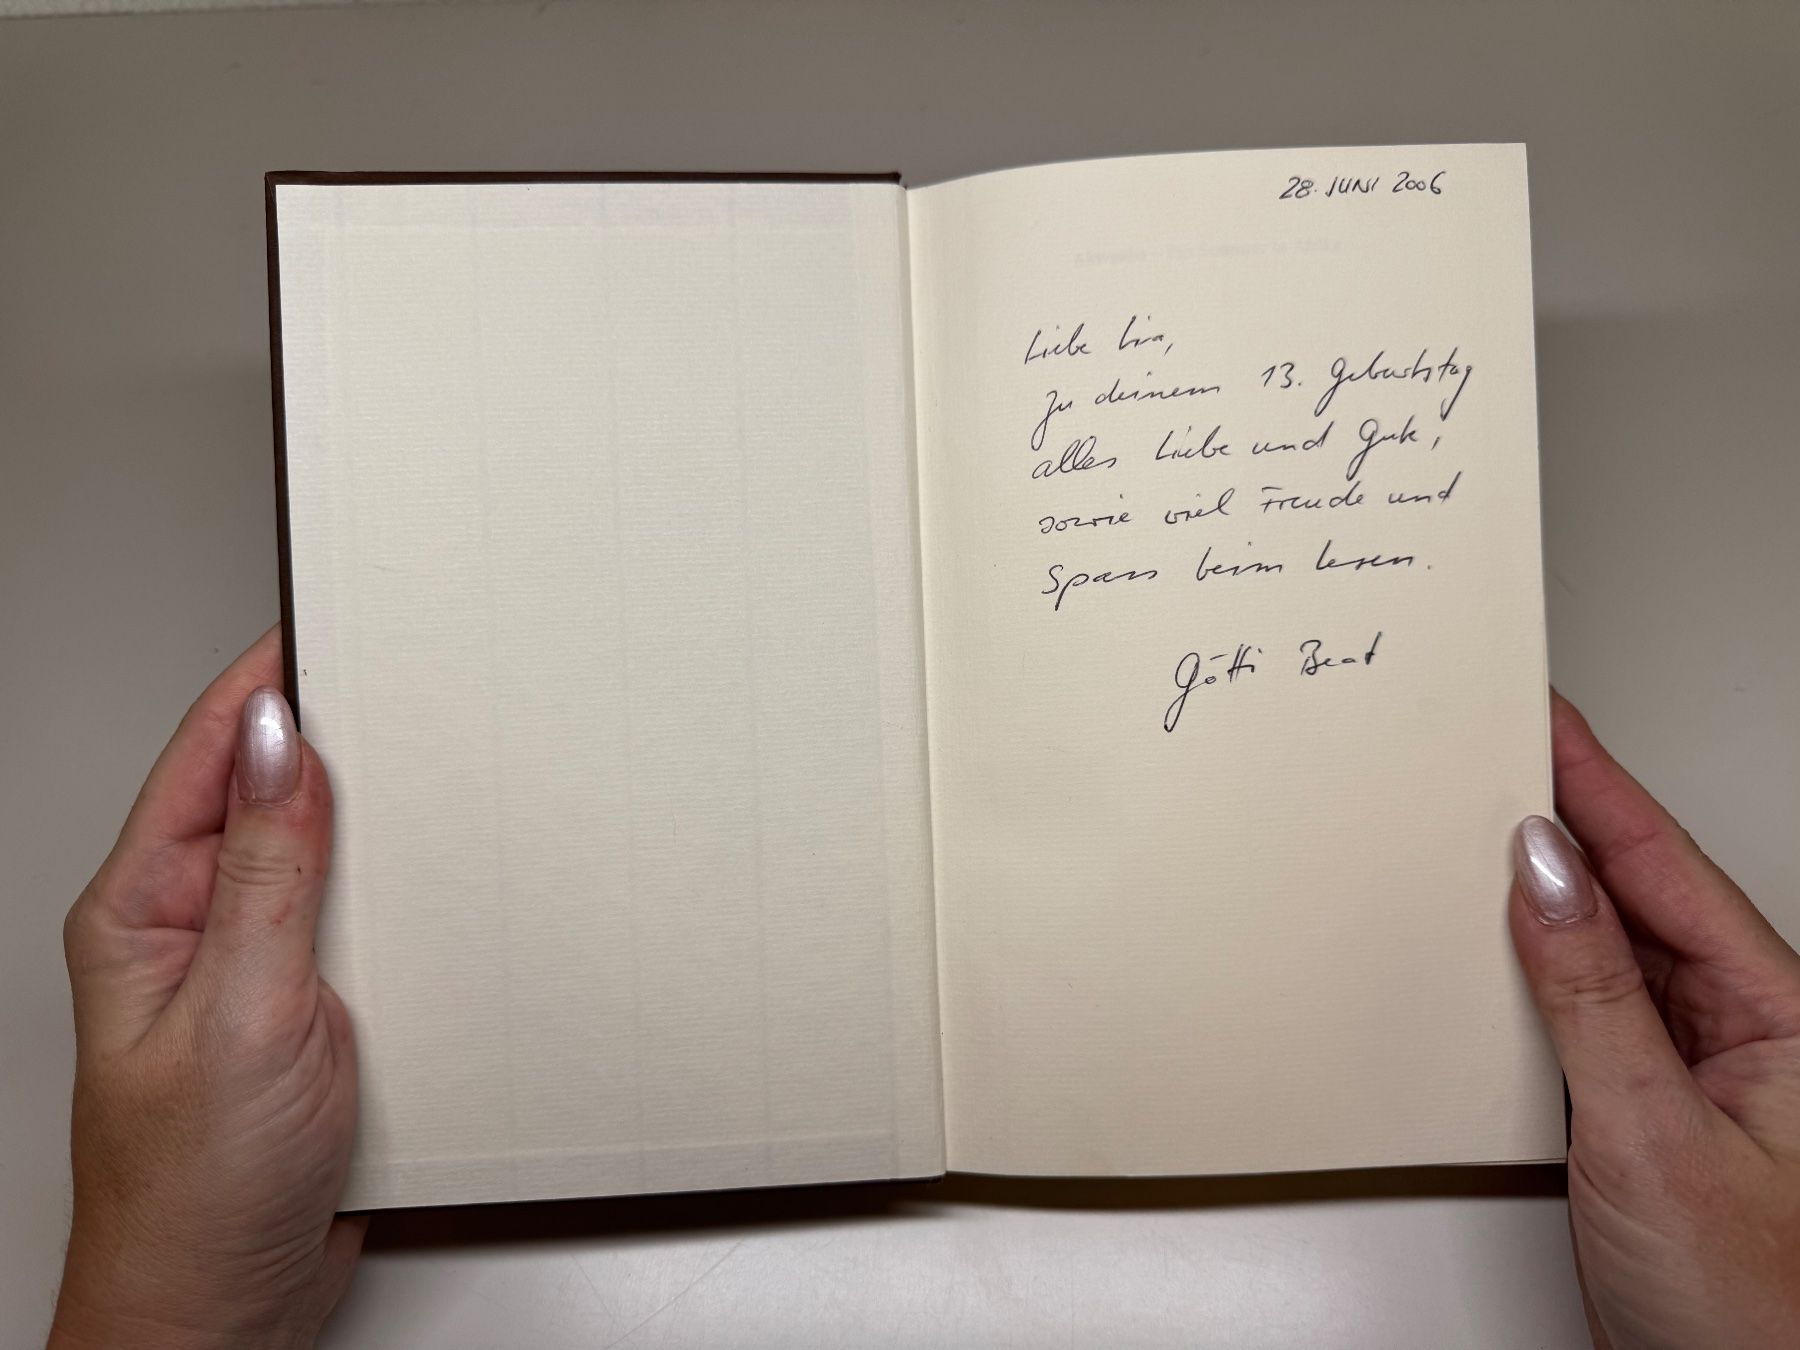 28. JUNI 2006
Liebe Lira,
Zu deinem 13. Geburtstag
alles Liebe und Gute,
sowie viel Freude und
Spass beim lesen.
Götti Beat